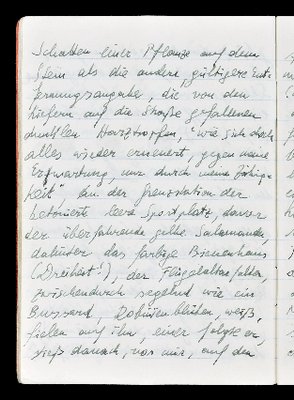 Schatten einer Pflanze auf dem
Stein als die andere, gültigere Ent-
fernungsangabe, die von den
Kiefern auf die Straße gefallenen
dunklen Harztropfen, "wie sich doch
alles wieder erneuert, gegen meine
Erwartung, nur durch meine
keit", an der Grenzstation der
betonierte leere Sportplatz, davor
der überfahrende gelbe Salamander,
dahinter das farbige Bienenhaus
(„Dreiheit"), der falter,
zwischendurch segelnd wie ein
Bussard, Robinienblüten, weiß,
fielen auf ihn, einer folgte er,
stieß danach, vor mir, auf den